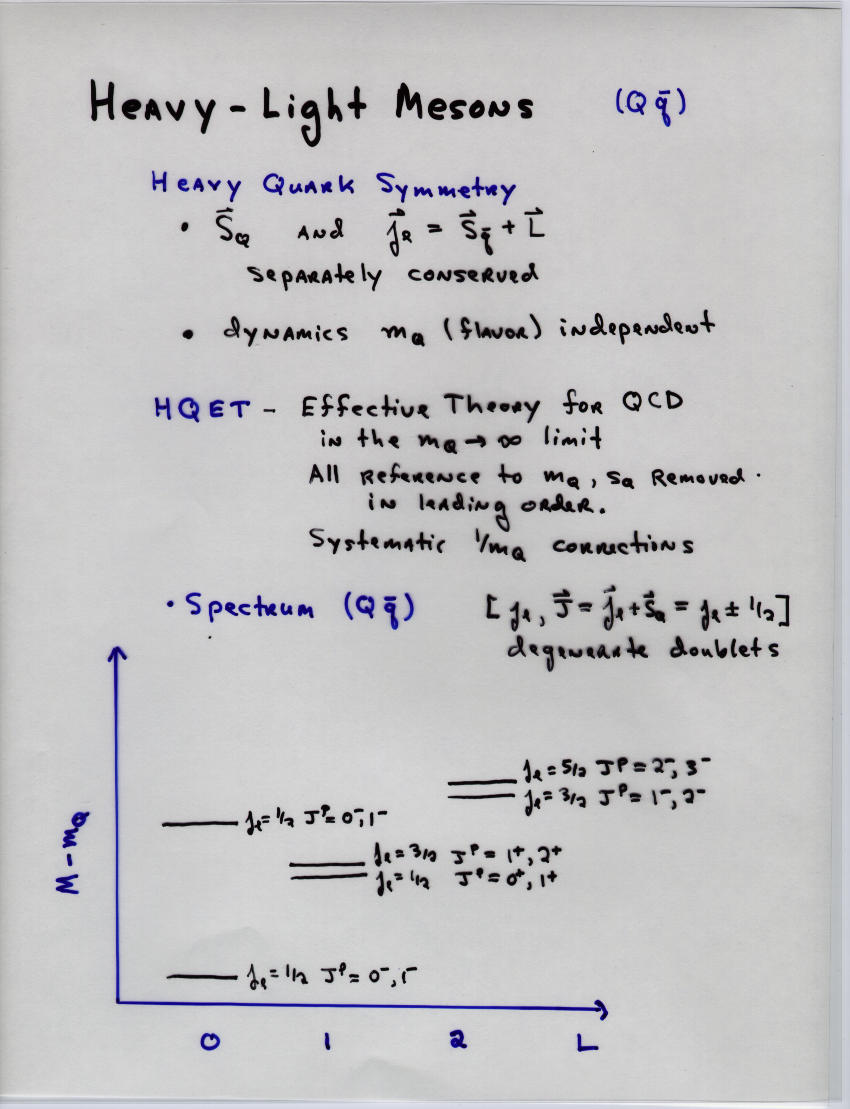 Heavy-Light Mesons (Q q̄)
Heavy Quark Symmetry
• S⃗_Q and j⃗_ℓ = S⃗_q̄ + L⃗
separately conserved
• dynamics m_Q (flavor) independent
HQET - Effective Theory for QCD
in the m_Q → ∞ limit
All reference to m_Q, s_Q removed.
in leading order.
Systematic 1/m_Q corrections
• Spectrum (Q q̄) [j_ℓ, J⃗ = j⃗_ℓ + S⃗_Q = j_ℓ ± 1/2]
degenerate doublets
j_ℓ = 5/2 J^P = 2⁻, 3⁻
j_ℓ = 3/2 J^P = 1⁻, 2⁻
j_ℓ = 1/2 J^P = 0⁻, 1⁻
j_ℓ = 3/2 J^P = 1⁺, 2⁺
j_ℓ = 1/2 J^P = 0⁺, 1⁺
M - m_Q
j_ℓ = 1/2 J^P = 0⁻, 1⁻
0 1 2 L